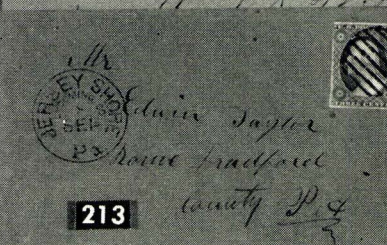 Mr
JERSEY SHORE
SEP
Pa
Edwin Taylor
Rome Bradford
County Pa
THREE CENTS
213